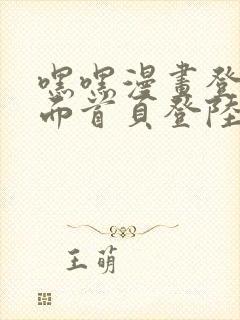 嘿嘿漫畫登
而首頁登陸
王萌